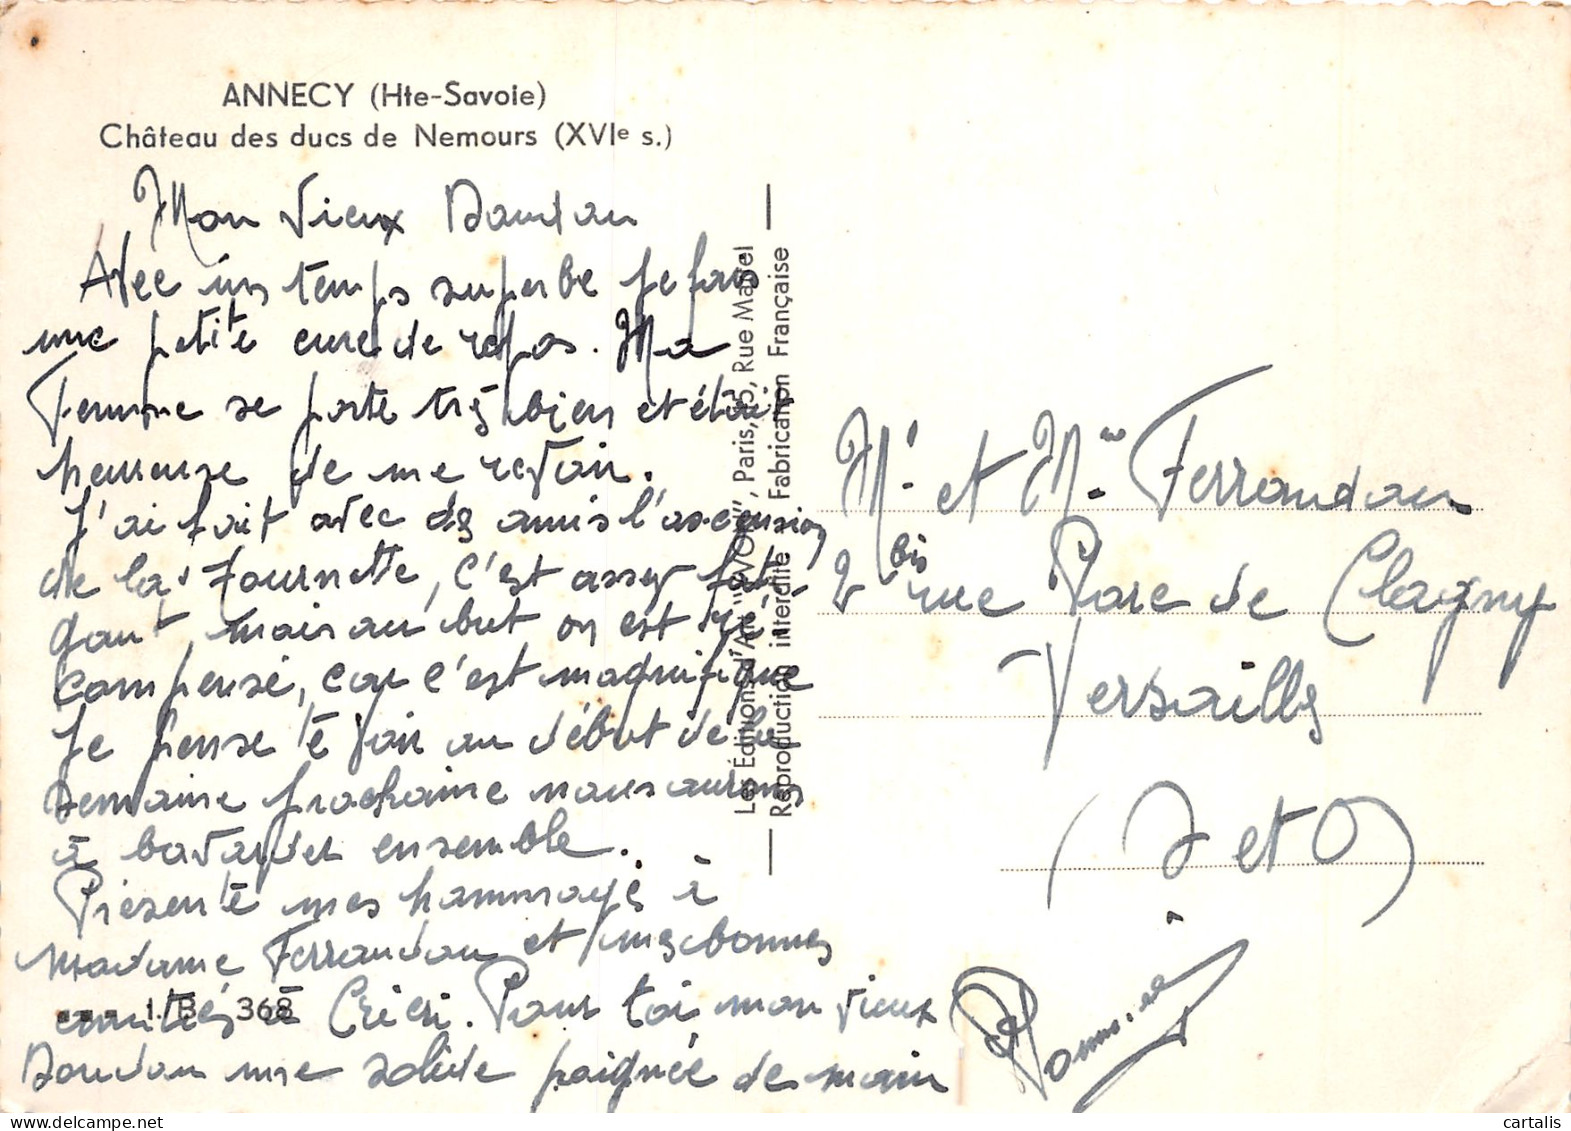 ANNECY (Hte-Savoie)
Château des ducs de Nemours (XVIe s.)
Mon Vieux Doudou
Avec un temps superbe je fais
une petite cure de repos. Ma
Femme se porte très bien et était
heureuse de me revoir.
J'ai fait avec des amis l'ascension
de la Tournette, c'est assez fati-
gant, mais au but on est ré-
compensé, car c'est magnifique
Je pense te voir au début de la
semaine prochaine nous aurons
à bavarder ensemble.
Présente mes hommages à
Madame Ferrandou et mes bonnes
amitiés à Cricri. Pour toi mon vieux
Doudou une solide poignée de main
I. B. 368
Les Éditions d'Art "YVON", Paris, 15, Rue Martel
Reproduction interdite Fabrication Française
Mr. et Mme Ferrandou
2 bis rue Parc de Clagny
Versailles
(S et O)
cartalis